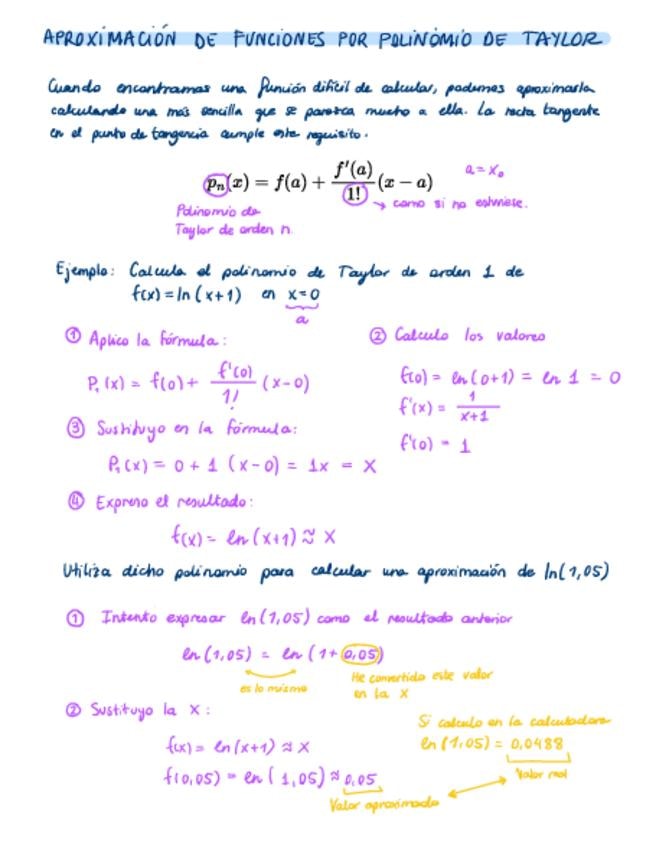 APROXIMACIÓN DE FUNCIONES POR POLINOMIO DE TAYLOR
Cuando encontramos una función difícil de calcular, podemos aproximarla
calculando una más sencilla que se parezca mucho a ella. La recta tangente
en el punto de tangencia cumple este requisito.
pₙ(x) = f(a) + f'(a)/1! (x − a)
a = x₀
→ como si no estuviese.
Polinomio de
Taylor de orden n.
Ejemplo: Calcula el polinomio de Taylor de orden 1 de
f(x) = ln(x+1) en x=0
a
① Aplico la fórmula:
P₁(x) = f(0) + f'(0)/1! (x-0)
② Calculo los valores
f(0) = ln(0+1) = ln 1 = 0
f'(x) = 1/x+1
f'(0) = 1
③ Sustituyo en la fórmula:
P₁(x) = 0 + 1 (x-0) = 1x = x
④ Expreso el resultado:
f(x) = ln(x+1) ≈ x
Utiliza dicho polinomio para calcular una aproximación de ln(1,05)
① Intento expresar ln(1,05) como el resultado anterior
ln(1,05) = ln(1+0,05)
es lo mismo
He convertido este valor
en la x
② Sustituyo la x:
f(x) = ln(x+1) ≈ x
f(0,05) = ln(1,05) ≈ 0,05
Valor aproximado
Si calculo en la calculadora
ln(1,05) = 0,0488
Valor real